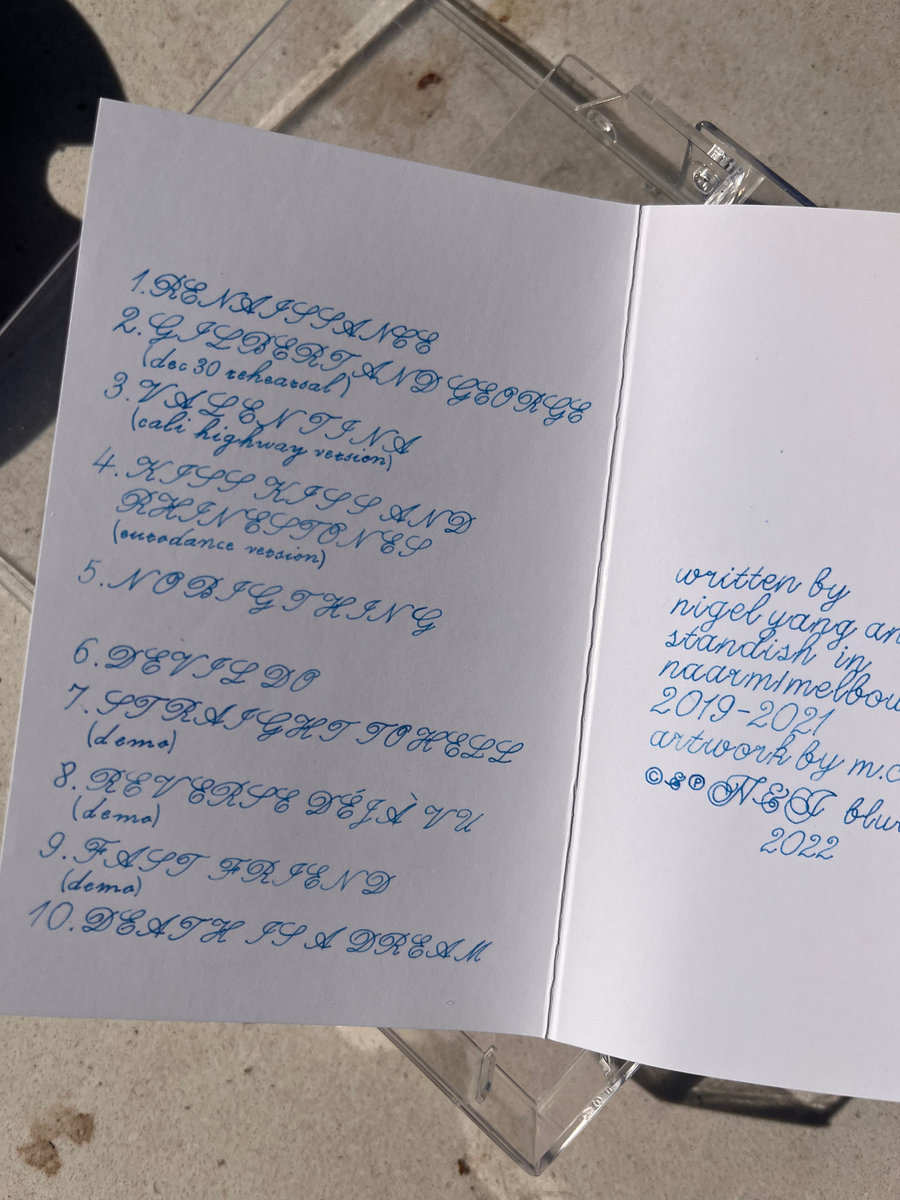 1. RENAISSANCE
2. GILBERT AND GEORGE
(dec 30 rehearsal)
3. VALENTINA
(cali highway version)
4. KISS KISS AND
RHINESTONES
(eurodance version)
5. NO BIG THING
6. DEVIL DO
7. STRAIGHT TO HELL
(demo)
8. REVERSE DÉJÀ VU
(demo)
9. FAST FRIEND
(demo)
10. DEATH IS A DREAM
written by
nigel yang an
standish in
naarm/melbou
2019-2021
artwork by m.c
© & ℗ N.E.T blur
2022